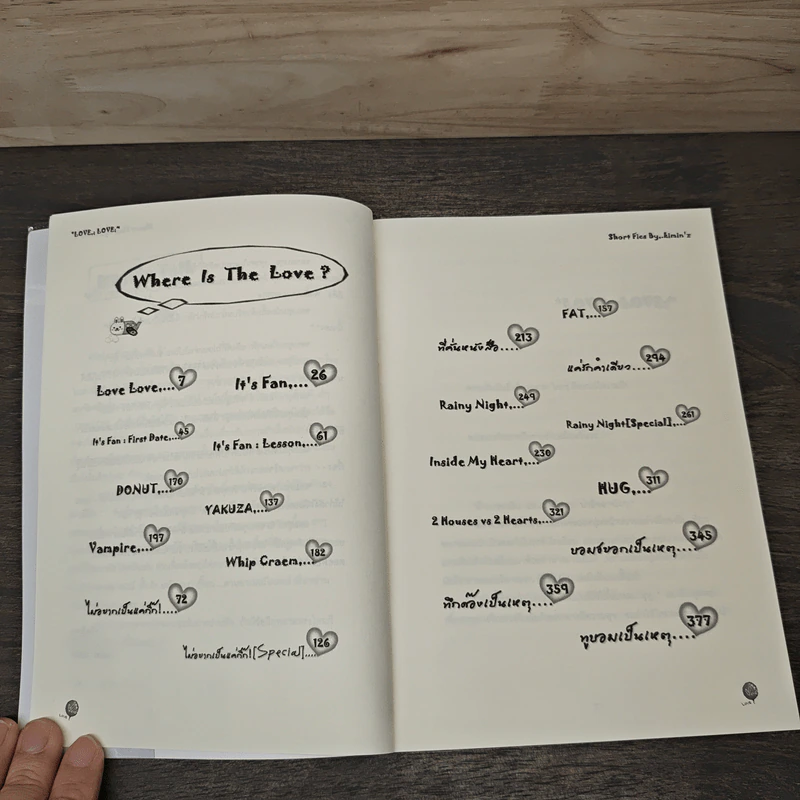 "LOVE., LOVE,"
Where Is The Love ?
Love Love,...7
It's Fan,...26
It's Fan : First Date,...45
It's Fan : Lesson,...61
DONUT,...170
YAKUZA,...137
Vampire,...197
Whip Craem,...182
ไม่อยากเป็นแค่กิ๊ก!....72
ไม่อยากเป็นแค่กิ๊ก![Special].....126
Short Fics By,.Aimin'z
FAT,...157
ที่คั่นหนังสือ....213
แค่รักคำเดียว....294
Rainy Night,...249
Rainy Night[Special],...261
Inside My Heart,...230
HUG,...311
2 Houses vs 2 Hearts,...321
บอมช์บอกเป็นเหตุ....345
ทึกต๊องเป็นเหตุ....359
ทูบอมเป็นเหตุ....377